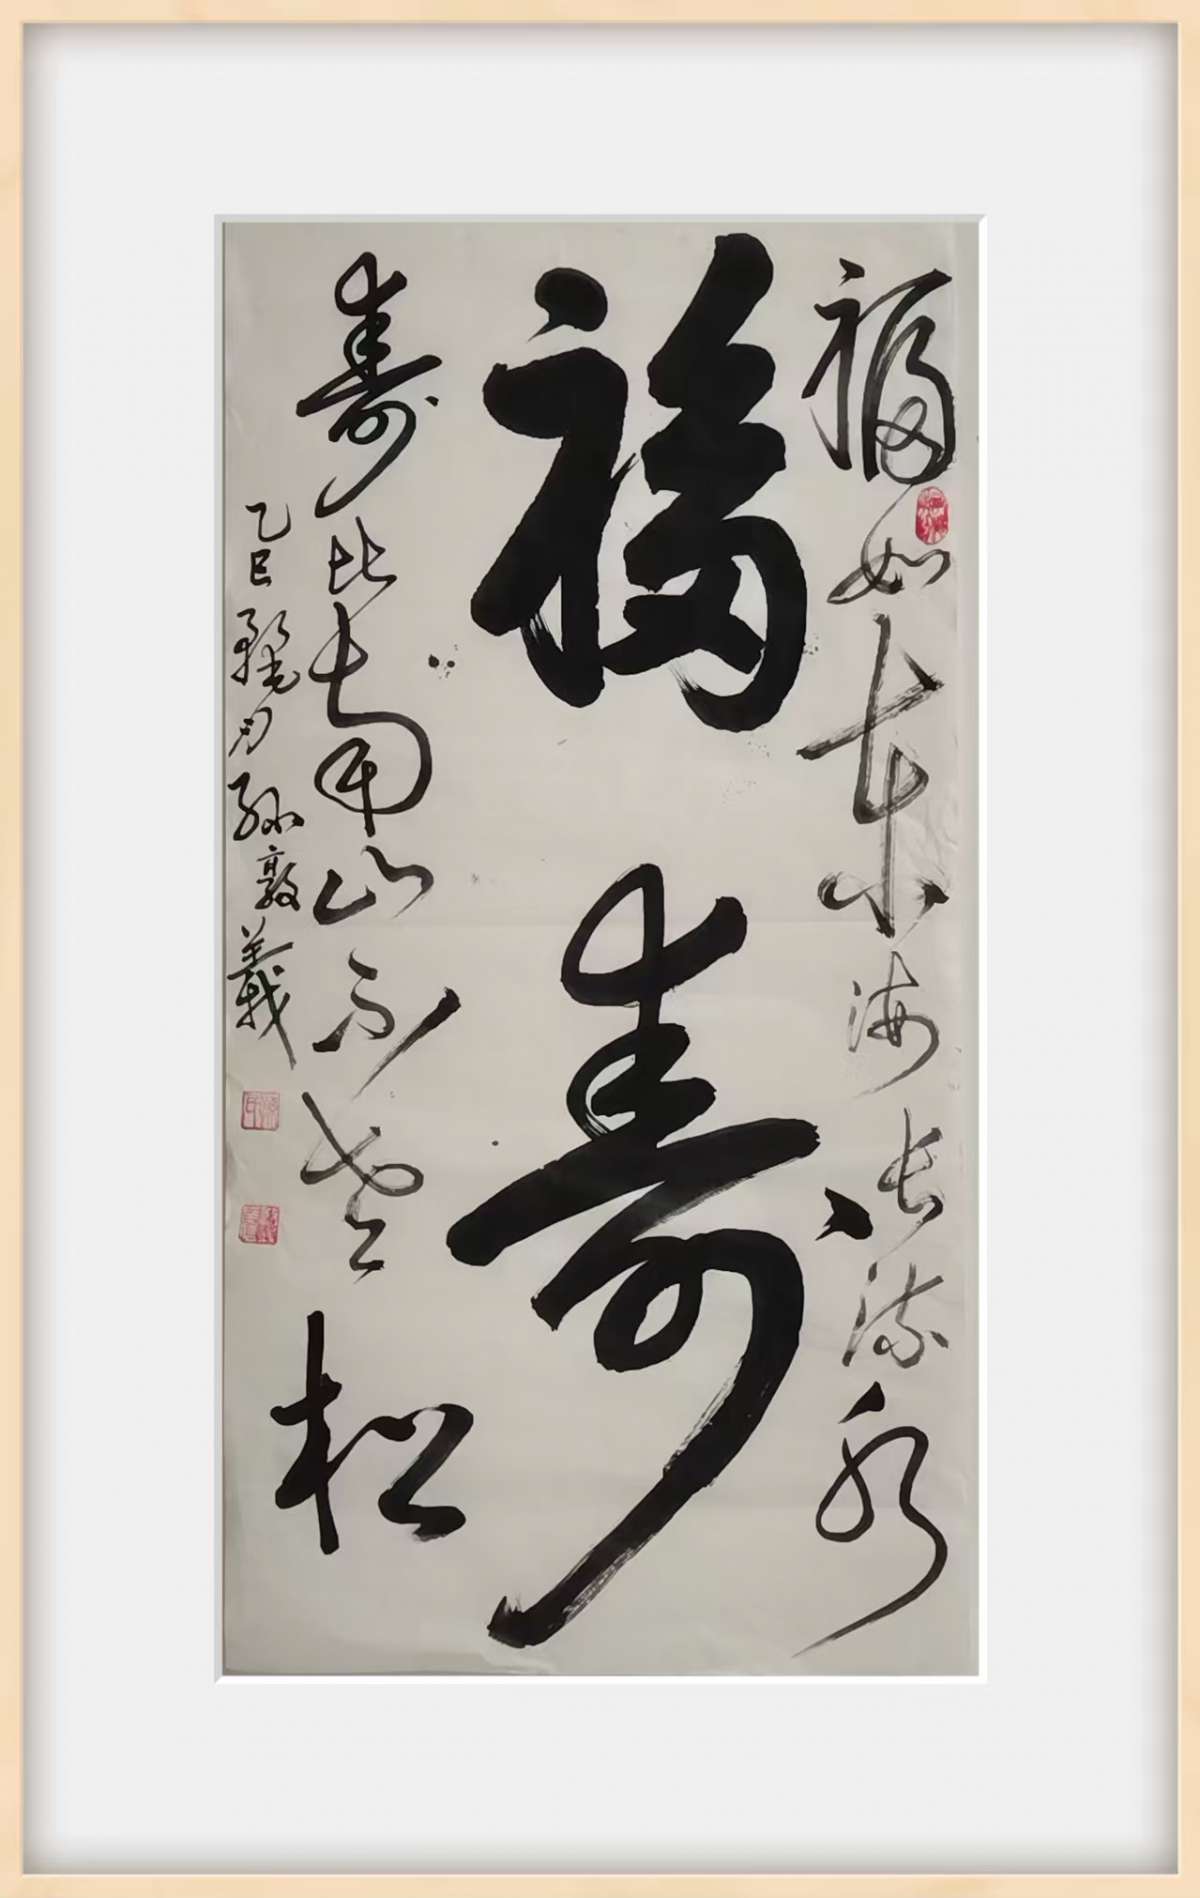 福如东海长流水
福寿
寿比南山不老松
乙巳 月孙敦義